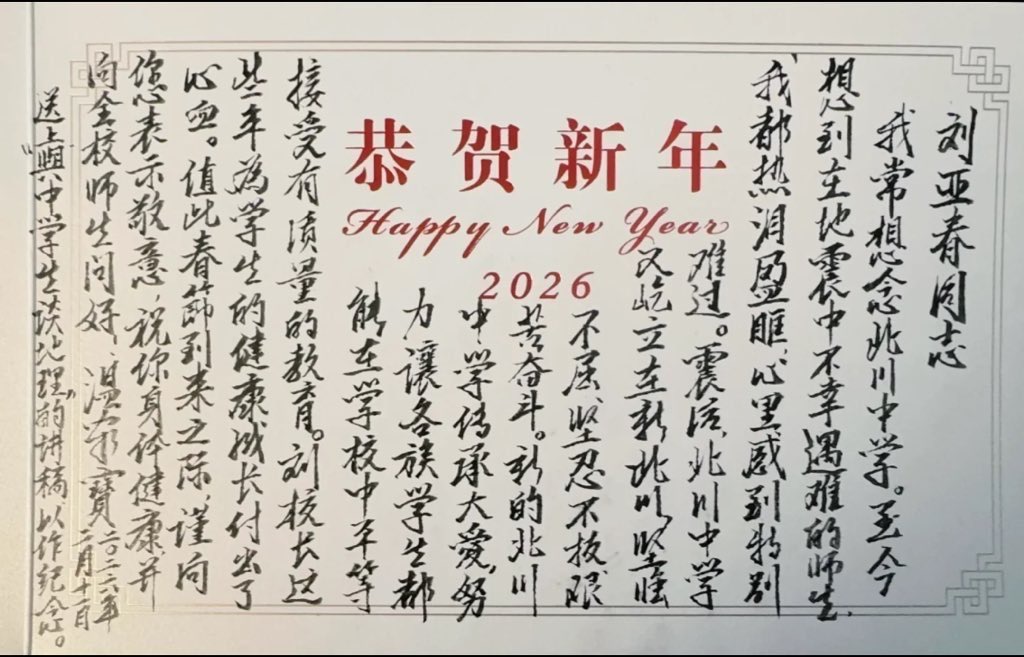 恭贺新年
Happy New Year
2026
刘亚春同志
我常想念北川中学。至今
想到在地震中不幸遇难的师生,
我都热泪盈眶,心里感到特别
难过。震后,北川中学
又屹立在新北川,坚强
不屈,坚忍不拔,艰
苦奋斗。新的北川
中学传承大爱,努
力讓各族学生都
能在学校中平等
接受有质量的教育。刘校长这
些年为学生的健康成长付出了
心血。值此春节到来之际,谨向
您表示敬意,祝你身体健康并
向全校师生问好,温家寶
二〇二六年
二月十一日
送上“與中学生谈地理”的讲稿以作纪念。